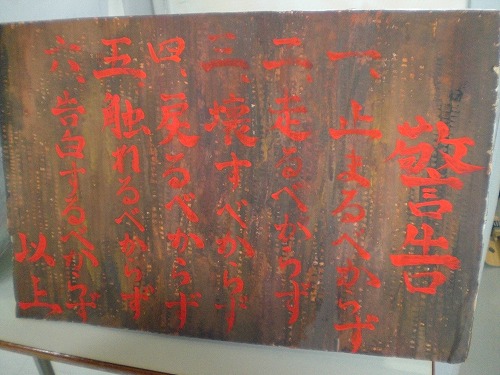 警告
一、止まるべからず
二、走るべからず
三、壊すべからず
四、戻るべからず
五、触れるべからず
六、告白するべからず
以上